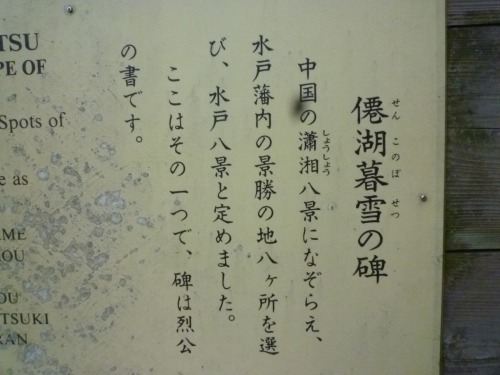 僊湖暮雪の碑
せん このぼ せつ
中国の瀟湘八景になぞらえ、
しょうしょう
水戸藩内の景勝の地八ヶ所を選
び、水戸八景と定めました。
ここはその一つで、碑は烈公
の書です。
TSU
PE OF
Spots of
e as
AME
OU
OU
TSUKI
KAN